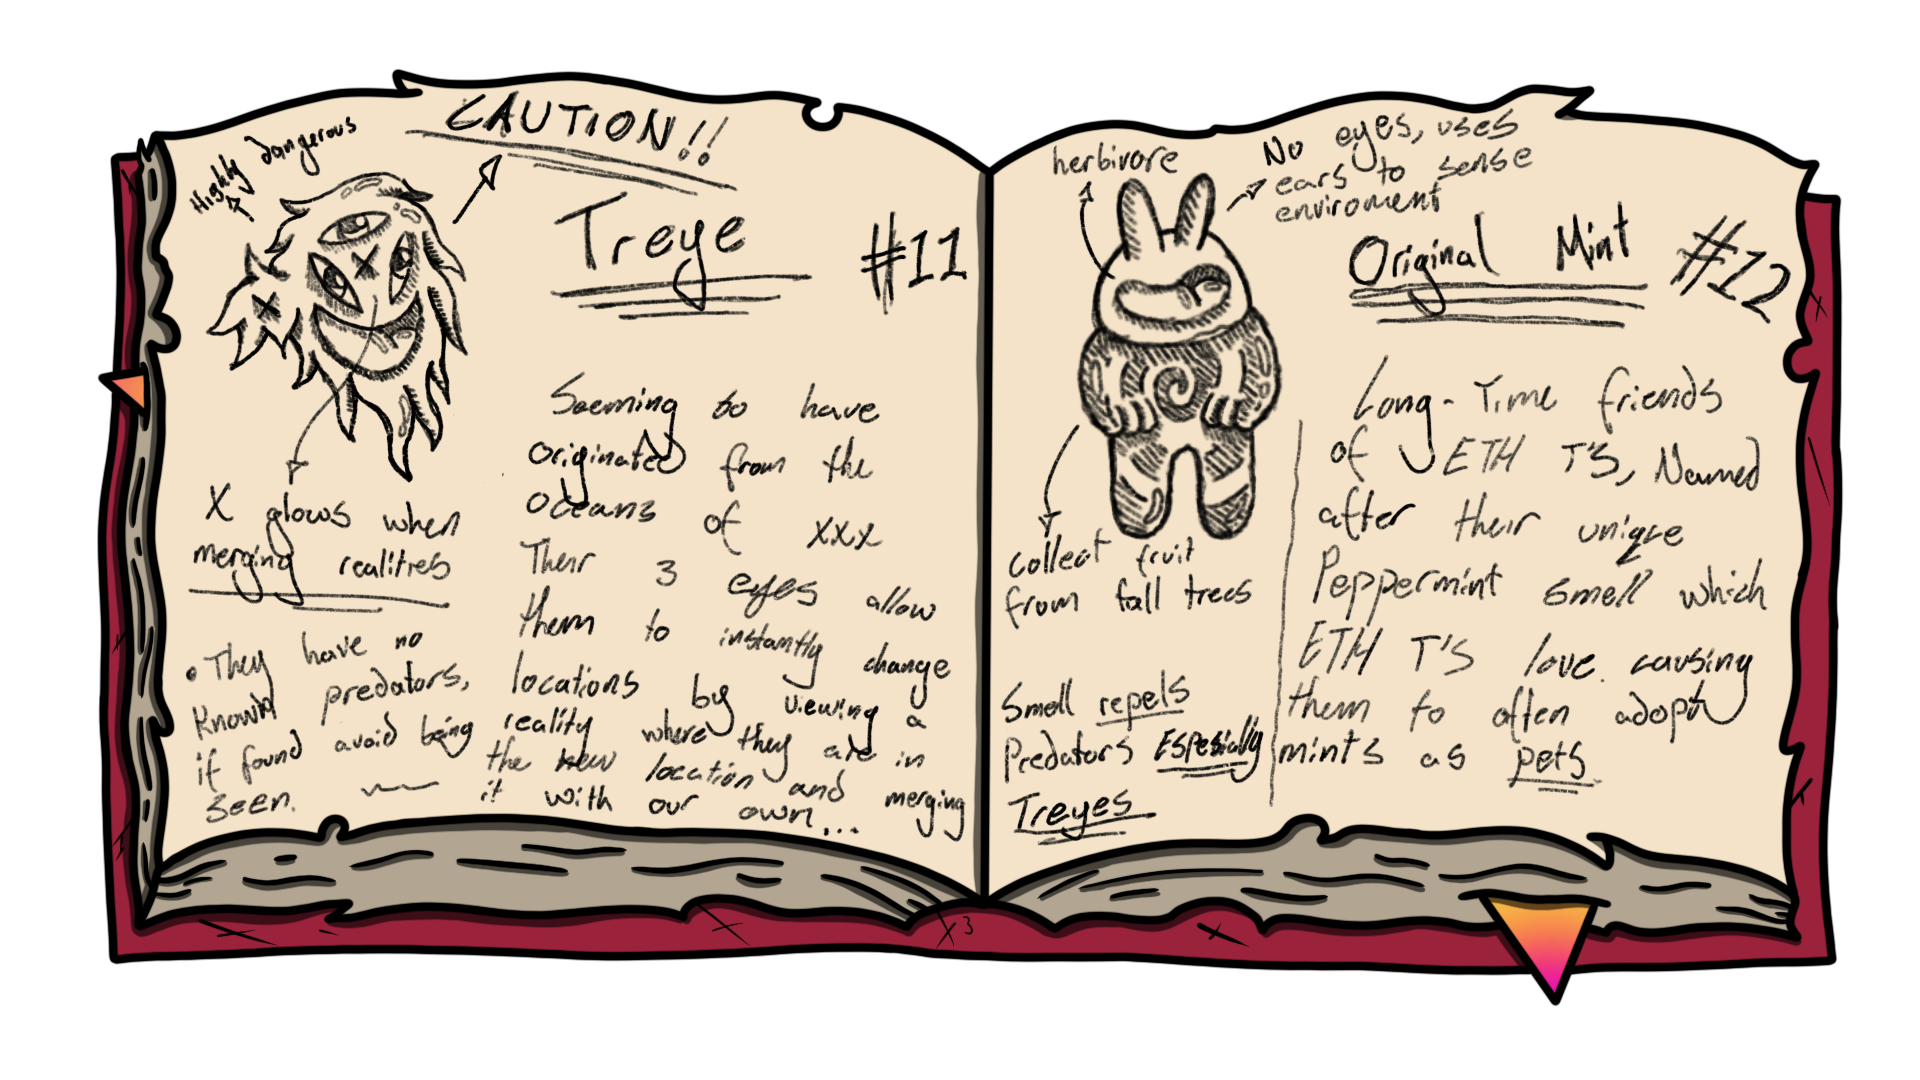 CAUTION!!
Highly dangerous
Treye
#11
X glows when
merging realities
• They have no
known predators,
if found avoid being
seen.
Seeming to have
originated from the
Oceans of xxx
Their 3 eyes allow
them to instantly change
locations by viewing a
reality where they are in
the new location and merging
it with our own...
herbivore
No eyes, uses
ears to sense
enviroment
Original Mint
#12
collect fruit
from fall trees
Smell repels
Predators Espesially
Treyes
Long-Time friends
of ETH T'S, Named
after their unique
Peppermint smell which
ETH T'S love causing
them to often adopt
mints as pets
X3